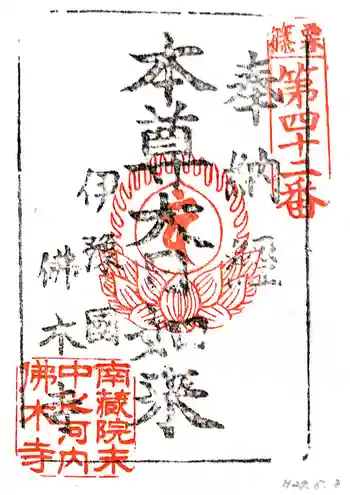 篠栗
第四十二番
奉納経
本尊大日如来
伊豫國
佛木寺
南蔵院末
中ノ河内
佛木寺
H29.5.8